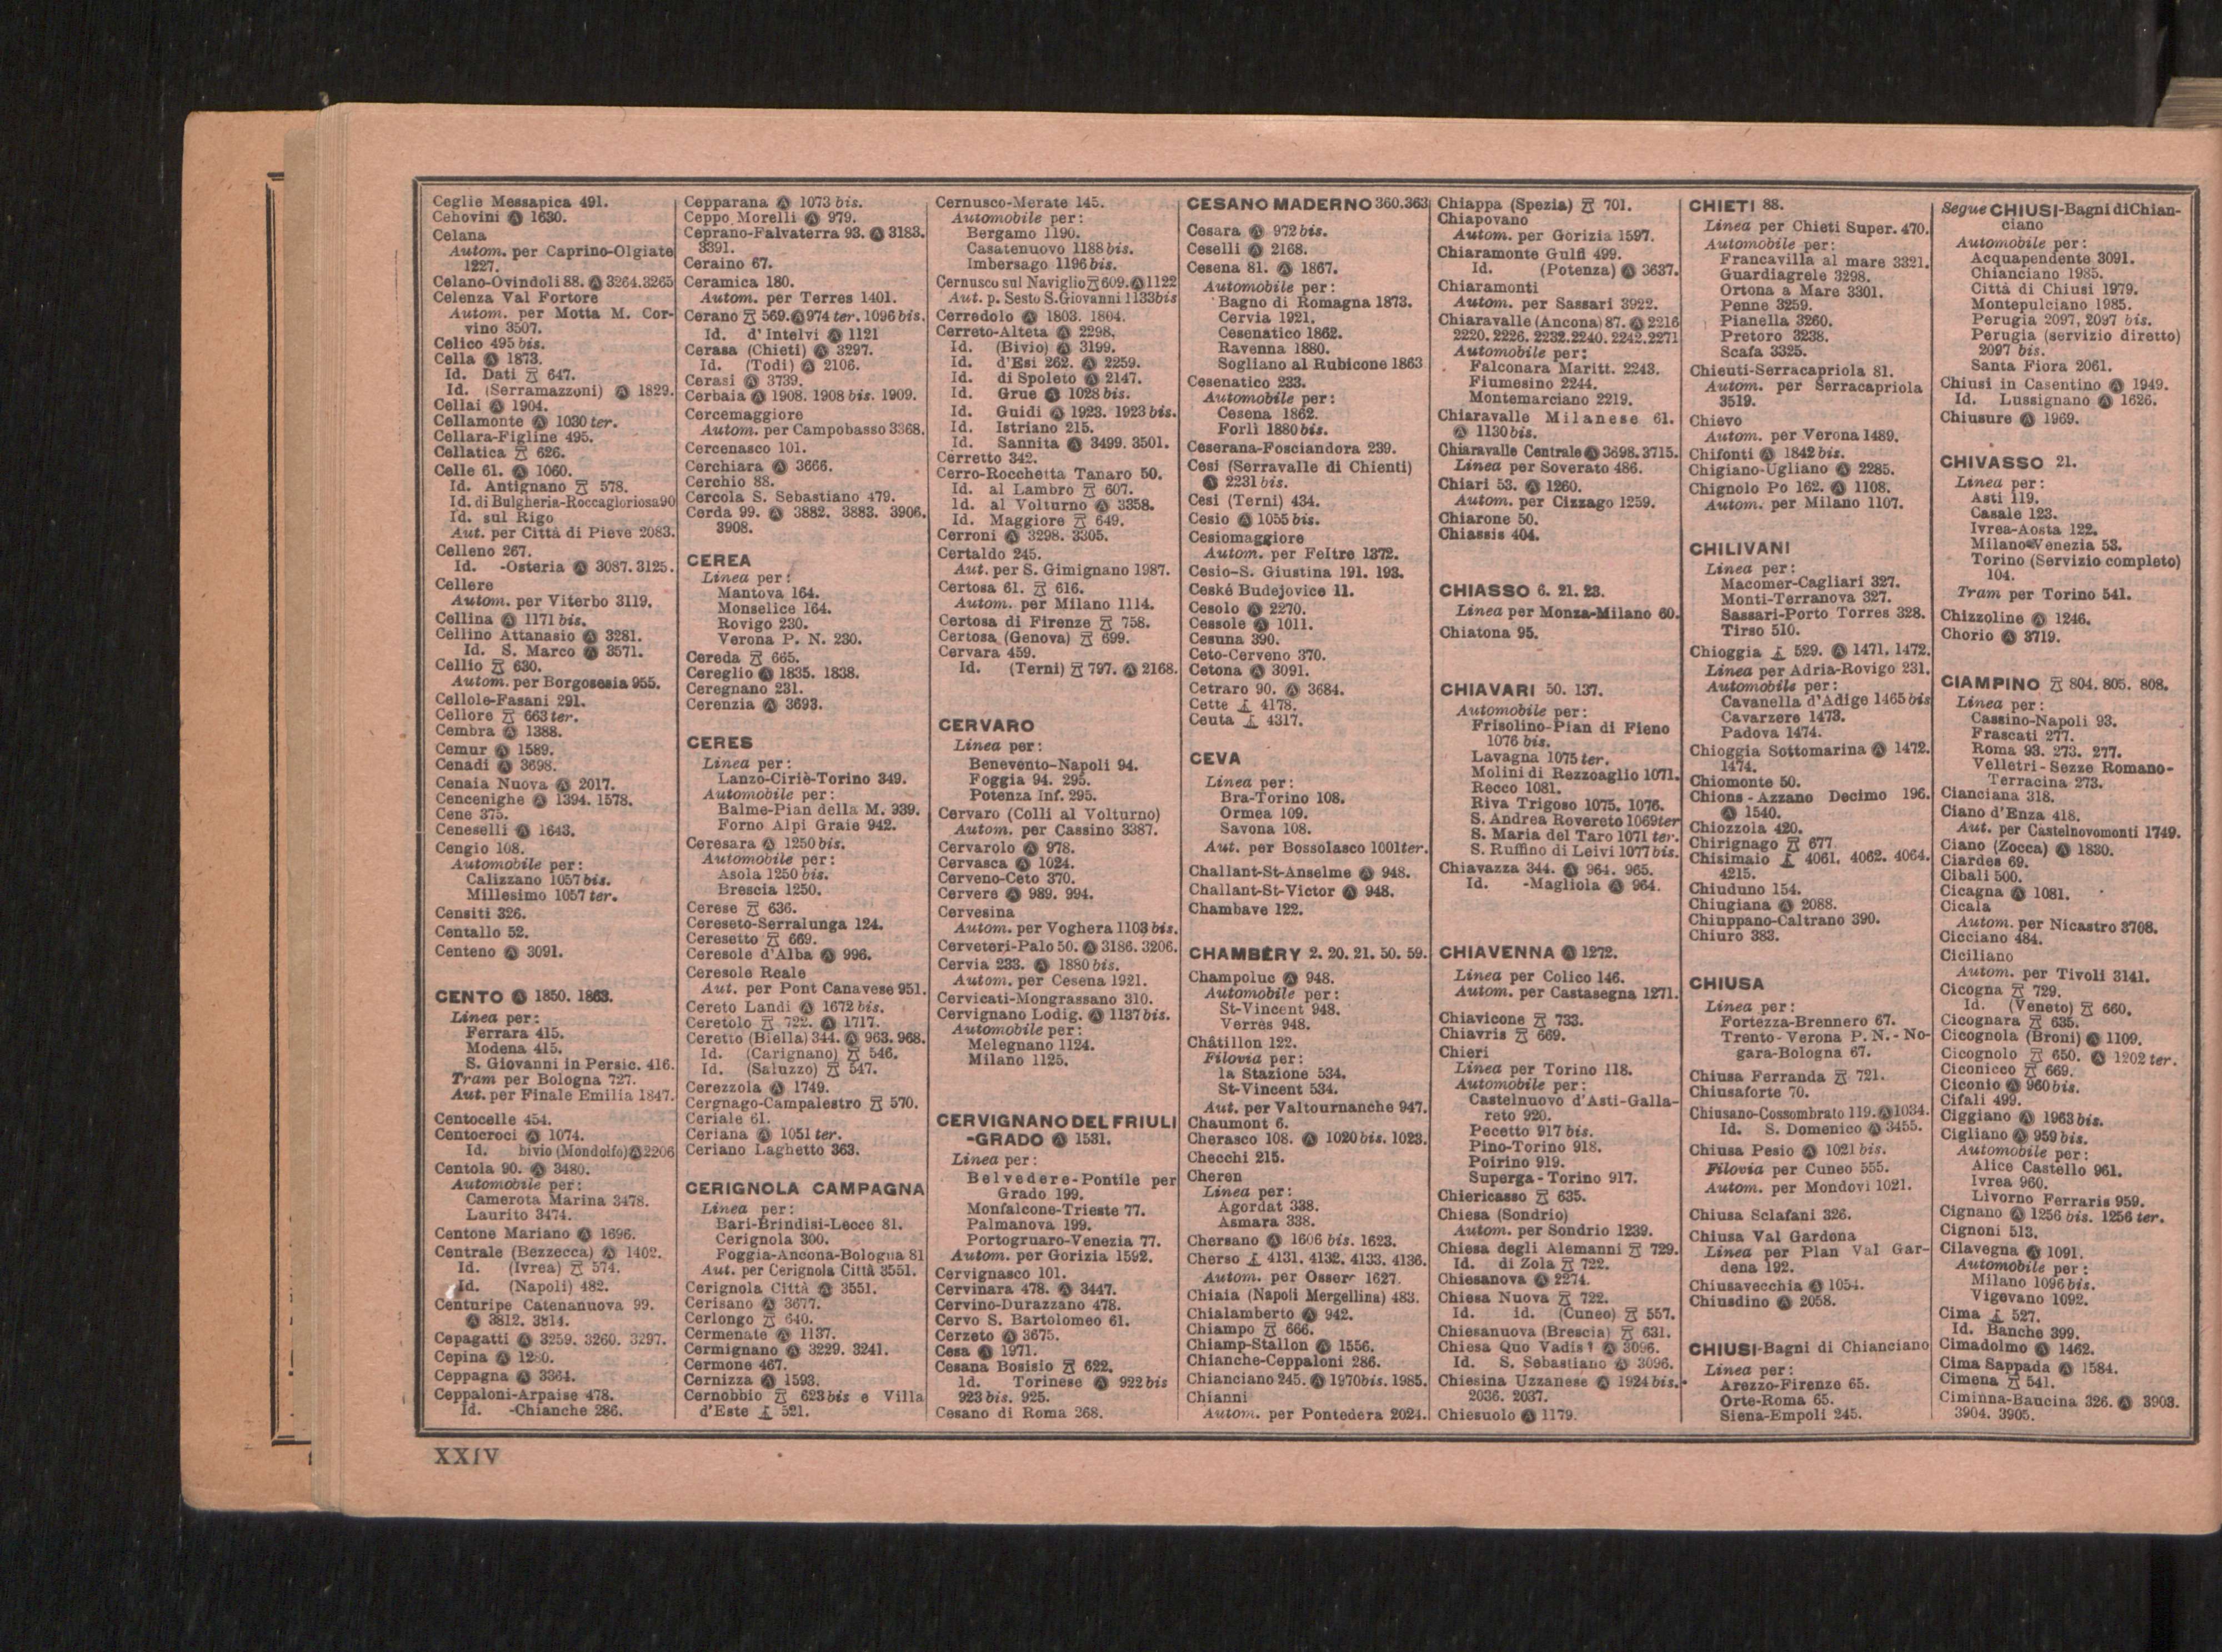 Ceglie Messapica 491.
Cehovini Ⓐ 1630.
Celana
Autom. per Caprino-Olgiate
1227.
Celano-Ovindoli 88. Ⓐ 3264.3265
Celenza Val Fortore
Autom. per Motta M. Cor-
vino 3507.
Celico 495 bis.
Cella Ⓐ 1873.
Id. Dati 647.
Id. (Serramazzoni) Ⓐ 1829.
Cellai Ⓐ 1904.
Cellamonte Ⓐ 1030 ter.
Cellara-Figline 495.
Cellatica 626.
Celle 61. Ⓐ 1060.
Id. Antignano 578.
Id. di Bulgheria-Roccagloriosa 90
Id. sul Rigo
Aut. per Città di Pieve 2083.
Celleno 267.
Id. -Osteria Ⓐ 3087. 3125.
Cellere
Autom. per Viterbo 3119.
Cellina Ⓐ 1171 bis.
Cellino Attanasio Ⓐ 3281.
Id. S. Marco Ⓐ 3571.
Cellio 630.
Autom. per Borgosesia 955.
Cellole-Fasani 291.
Cellore 663 ter.
Cembra Ⓐ 1388.
Cemur Ⓐ 1589.
Cenadi Ⓐ 3698.
Cenaia Nuova Ⓐ 2017.
Cencenighe Ⓐ 1394. 1578.
Cene 375.
Ceneselli Ⓐ 1643.
Cengio 108.
Automobile per:
Calizzano 1057 bis.
Millesimo 1057 ter.
Censiti 326.
Centallo 52.
Centeno Ⓐ 3091.
CENTO Ⓐ 1850. 1863.
Linea per:
Ferrara 415.
Modena 415.
S. Giovanni in Persic. 416.
Tram per Bologna 727.
Aut. per Finale Emilia 1847.
Centocelle 454.
Centocroci Ⓐ 1074.
Id. bivio (Mondolfo) Ⓐ 2206
Centola 90. Ⓐ 3480.
Automobile per:
Camerota Marina 3478.
Laurito 3474.
Centone Mariano Ⓐ 1696.
Centrale (Bezzecca) Ⓐ 1402.
Id. (Ivrea) 574.
Id. (Napoli) 482.
Centuripe Catenanuova 99.
Ⓐ 3812. 3814.
Cepagatti Ⓐ 3259. 3260. 3297.
Cepina Ⓐ
Ceppagna Ⓐ 3364.
Ceppaloni-Arpaise 478.
Id. -Chianche 286.
Cepparana Ⓐ 1073 bis.
Ceppo Morelli Ⓐ 979.
Ceprano-Falvaterra 93. Ⓐ 3183.
3391.
Ceraino 67.
Ceramica 180.
Autom. per Terres 1401.
Cerano 569. Ⓐ 974 ter. 1096 bis.
Id. d'Intelvi Ⓐ 1121
Cerasa (Chieti) Ⓐ 3297.
Id. (Todi) Ⓐ 2106.
Cerasi Ⓐ 3739.
Cerbaia Ⓐ 1908. 1908 bis. 1909.
Cercemaggiore
Autom. per Campobasso 3368.
Cercenasco 101.
Cerchiara Ⓐ 3666.
Cerchio 88.
Cercola S. Sebastiano 479.
Cerda 99. Ⓐ 3882. 3883. 3906.
3908.
CEREA
Linea per:
Mantova 164.
Monselice 164.
Rovigo 230.
Verona P. N. 230.
Cereda 665.
Cereglio Ⓐ 1835. 1838.
Ceregnano 231.
Cerenzia Ⓐ 3693.
CERES
Linea per:
Lanzo-Ciriè-Torino 349.
Automobile per:
Balme-Pian della M. 939.
Forno Alpi Graie 942.
Ceresara Ⓐ 1250 bis.
Automobile per:
Asola 1250 bis.
Brescia 1250.
Cerese 636.
Cereseto-Serralunga 124.
Ceresetto 669.
Ceresole d'Alba Ⓐ 996.
Ceresole Reale
Aut. per Pont Canavese 951.
Cereto Landi Ⓐ 1672 bis.
Ceretolo 722. Ⓐ 1717.
Ceretto (Biella) 344. Ⓐ 963. 968.
Id. (Carignano) 546.
Id. (Saluzzo) 547.
Cerezzola Ⓐ 1749.
Cergnago-Campalestro 570.
Ceriale 61.
Ceriana Ⓐ 1051 ter.
Ceriano Laghetto 363.
CERIGNOLA CAMPAGNA
Linea per:
Bari-Brindisi-Lecce 81.
Cerignola 300.
Foggia-Ancona-Bologna 81
Aut. per Cerignola Città 3551.
Cerignola Città Ⓐ 3551.
Cerisano Ⓐ 3677.
Cerlongo 640.
Cermenate Ⓐ 1137.
Cermignano Ⓐ 3229. 3241.
Cermone 467.
Cernizza Ⓐ 1593.
Cernobbio 623 bis e Villa
d'Este 521.
Cernusco-Merate 145.
Automobile per:
Bergamo 1190.
Casatenuovo 1188 bis.
Imbersago 1196 bis.
Cernusco sul Naviglio 609. Ⓐ 1122
Aut. p. Sesto S. Giovanni 1133 bis
Cerredolo Ⓐ 1803. 1804.
Cerreto-Alteta Ⓐ 2298.
Id. (Bivio) Ⓐ 3199.
Id. d'Esi 262. Ⓐ 2259.
Id. di Spoleto Ⓐ 2147.
Id. Grue Ⓐ 1028 bis.
Id. Guidi Ⓐ 1923. 1923 bis.
Id. Istriano 215.
Id. Sannita Ⓐ 3499. 3501.
Cerretto 342.
Cerro-Rocchetta Tanaro 50.
Id. al Lambro 607.
Id. al Volturno Ⓐ 3358.
Id. Maggiore 649.
Cerroni Ⓐ 3298. 3305.
Certaldo 245.
Aut. per S. Gimignano 1987.
Certosa 61. 616.
Autom. per Milano 1114.
Certosa di Firenze 758.
Certosa (Genova) 699.
Cervara 459.
Id. (Terni) 797. Ⓐ 2168.
CERVARO
Linea per:
Benevento-Napoli 94.
Foggia 94. 295.
Potenza Inf. 295.
Cervaro (Colli al Volturno)
Autom. per Cassino 3387.
Cervarolo Ⓐ 978.
Cervasca Ⓐ 1024.
Cerveno-Ceto 370.
Cervere Ⓐ 989. 994.
Cervesina
Autom. per Voghera 1103 bis.
Cerveteri-Palo 50. Ⓐ 3186. 3206.
Cervia 233. Ⓐ 1880 bis.
Autom. per Cesena 1921.
Cervicati-Mongrassano 310.
Cervignano Lodig. Ⓐ 1137 bis.
Automobile per:
Melegnano 1124.
Milano 1125.
CERVIGNANO DEL FRIULI
-GRADO Ⓐ 1531.
Linea per:
Belvedere-Pontile per
Grado 199.
Monfalcone-Trieste 77.
Palmanova 199.
Portogruaro-Venezia 77.
Autom. per Gorizia 1592.
Cervignasco 101.
Cervinara 478. Ⓐ 3447.
Cervino-Durazzano 478.
Cervo S. Bartolomeo 61.
Cerzeto Ⓐ 3675.
Cesa Ⓐ 1971.
Cesana Bosisio 622.
Id. Torinese Ⓐ 922 bis
923 bis. 925.
Cesano di Roma 268.
CESANO MADERNO 360.363
Cesara Ⓐ 972 bis.
Ceselli Ⓐ 2168.
Cesena 81. Ⓐ 1867.
Automobile per:
Bagno di Romagna 1873.
Cervia 1921.
Cesenatico 1862.
Ravenna 1880.
Sogliano al Rubicone 1863
Cesenatico 233.
Automobile per:
Cesena 1862.
Forlì 1880 bis.
Ceserana-Fosciandora 239.
Cesi (Serravalle di Chienti)
Ⓐ 2231 bis.
Cesi (Terni) 434.
Cesio Ⓐ 1055 bis.
Cesiomaggiore
Autom. per Feltre 1372.
Cesio-S. Giustina 191. 193.
Ceské Budejovice 11.
Cesolo Ⓐ 2270.
Cessole Ⓐ 1011.
Cesuna 390.
Ceto-Cerveno 370.
Cetona Ⓐ 3091.
Cetraro 90. Ⓐ 3684.
Cette 4178.
Ceuta 4317.
CEVA
Linea per:
Bra-Torino 108.
Ormea 109.
Savona 108.
Aut. per Bossolasco 1001 ter.
Challant-St-Anselme Ⓐ 948.
Challant-St-Victor Ⓐ 948.
Chambave 122.
CHAMBÉRY 2. 20. 21. 50. 59.
Champoluc Ⓐ 948.
Automobile per:
St-Vincent 948.
Verrès 948.
Châtillon 122.
Filovia per:
la Stazione 534.
St-Vincent 534.
Aut. per Valtournanche 947.
Chaumont 6.
Cherasco 108. Ⓐ 1020 bis. 1023.
Checchi 215.
Cheren
Linea per:
Agordat 338.
Asmara 338.
Chersano Ⓐ 1606 bis. 1623.
Cherso 4131. 4132. 4133. 4136.
Autom. per Ossero 1627.
Chiaia (Napoli Mergellina) 483.
Chialamberto Ⓐ 942.
Chiampo 666.
Chiamp-Stallon Ⓐ 1556.
Chianche-Ceppaloni 286.
Chianciano 245. Ⓐ 1970 bis. 1985.
Chianni
Autom. per Pontedera 2024.
Chiappa (Spezia) 701.
Chiapovano
Autom. per Gorizia 1597.
Chiaramonte Gulfi 499.
Id. (Potenza) Ⓐ 3637.
Chiaramonti
Autom. per Sassari 3922.
Chiaravalle (Ancona) 87. Ⓐ 2216
2220. 2226. 2232. 2240. 2242. 2271
Automobile per:
Falconara Maritt. 2243.
Fiumesino 2244.
Montemarciano 2219.
Chiaravalle Milanese 61.
Ⓐ 1130 bis.
Chiaravalle Centrale Ⓐ 3698. 3715.
Linea per Soverato 486.
Chiari 53. Ⓐ 1260.
Autom. per Cizzago 1259.
Chiarone 50.
Chiassis 404.
CHIASSO 6. 21. 23.
Linea per Monza-Milano 60.
Chiatona 95.
CHIAVARI 50. 137.
Automobile per:
Frisolino-Pian di Fieno
1076 bis.
Lavagna 1075 ter.
Molini di Rezzoaglio 1071.
Recco 1081.
Riva Trigoso 1075. 1076.
S. Andrea Rovereto 1069 ter
S. Maria del Taro 1071 ter.
S. Ruffino di Leivi 1077 bis.
Chiavazza 344. Ⓐ 964. 965.
Id. -Magliola Ⓐ 964.
CHIAVENNA Ⓐ 1272.
Linea per Colico 146.
Autom. per Castasegna 1271.
Chiavicone 733.
Chiavris 669.
Chieri
Linea per Torino 118.
Automobile per:
Castelnuovo d'Asti-Galla-
reto 920.
Pecetto 917 bis.
Pino-Torino 918.
Poirino 919.
Superga-Torino 917.
Chiericasso 635.
Chiesa (Sondrio)
Autom. per Sondrio 1239.
Chiesa degli Alemanni 729.
Id. di Zola 722.
Chiesanova Ⓐ 2274.
Chiesa Nuova 722.
Id. id. (Cuneo) 557.
Chiesanuova (Brescia) 631.
Chiesa Quo Vadis? Ⓐ 3096.
Id. S. Sebastiano Ⓐ 3096.
Chiesina Uzzanese Ⓐ 1924 bis.
2036. 2037.
Chiesuolo Ⓐ 1179.
CHIETI 88.
Linea per Chieti Super. 470.
Automobile per:
Francavilla al mare 3321.
Guardiagrele 3298.
Ortona a Mare 3301.
Penne 3259.
Pianella 3260.
Pretoro 3238.
Scafa 3325.
Chieuti-Serracapriola 81.
Autom. per Serracapriola
3519.
Chievo
Autom. per Verona 1489.
Chifonti Ⓐ 1842 bis.
Chigiano-Ugliano Ⓐ 2285.
Chignolo Po 162. Ⓐ 1108.
Autom. per Milano 1107.
CHILIVANI
Linea per:
Macomer-Cagliari 327.
Monti-Terranova 327.
Sassari-Porto Torres 328.
Tirso 510.
Chioggia 529. Ⓐ 1471. 1472.
Linea per Adria-Rovigo 231.
Automobile per:
Cavanella d'Adige 1465 bis
Cavarzere 1473.
Padova 1474.
Chioggia Sottomarina Ⓐ 1472.
1474.
Chiomonte 50.
Chions-Azzano Decimo 196.
Ⓐ 1540.
Chiozzola 420.
Chirignago 677
Chisimaio 4061. 4062. 4064.
4215.
Chiuduno 154.
Chiugiana Ⓐ 2088.
Chiuppano-Caltrano 390.
Chiuro 383.
CHIUSA
Linea per:
Fortezza-Brennero 67.
Trento-Verona P. N.-No-
gara-Bologna 67.
Chiusa Ferranda 721.
Chiusaforte 70.
Chiusano-Cossombrato 119. Ⓐ 1034.
Id. S. Domenico Ⓐ 3455.
Chiusa Pesio Ⓐ 1021 bis.
Filovia per Cuneo 555.
Autom. per Mondovì 1021.
Chiusa Sclafani 326.
Chiusa Val Gardona
Linea per Plan Val Gar-
dena 192.
Chiusavecchia Ⓐ 1054.
Chiusdino Ⓐ 2058.
CHIUSI-Bagni di Chianciano
Linea per:
Arezzo-Firenze 65.
Orte-Roma 65.
Siena-Empoli 245.
Segue CHIUSI-Bagni di Chian-
ciano
Automobile per:
Acquapendente 3091.
Chianciano 1985.
Città di Chiusi 1979.
Montepulciano 1985.
Perugia 2097, 2097 bis.
Perugia (servizio diretto)
2097 bis.
Santa Fiora 2061.
Chiusi in Casentino Ⓐ 1949.
Id. Lussignano Ⓐ 1626.
Chiusure Ⓐ 1969.
CHIVASSO 21.
Linea per:
Asti 119.
Casale 123.
Ivrea-Aosta 122.
Milano-Venezia 53.
Torino (Servizio completo)
104.
Tram per Torino 541.
Chizzoline Ⓐ 1246.
Chorio Ⓐ 3719.
CIAMPINO 804. 805. 808.
Linea per:
Cassino-Napoli 93.
Frascati 277.
Roma 93. 273. 277.
Velletri-Sezze Romano-
Terracina 273.
Cianciana 318.
Ciano d'Enza 418.
Aut. per Castelnovomonti 1749.
Ciano (Zocca) Ⓐ 1830.
Ciardes 69.
Cibali 500.
Cicagna Ⓐ 1081.
Cicala
Autom. per Nicastro 3708.
Cicciano 484.
Ciciliano
Autom. per Tivoli 3141.
Cicogna 729.
Id. (Veneto) 660.
Cicognara 635.
Cicognola (Broni) Ⓐ 1109.
Cicognolo 650. Ⓐ 1202 ter.
Ciconicco 669.
Ciconio Ⓐ 960 bis.
Cifali 499.
Ciggiano Ⓐ 1963 bis.
Cigliano Ⓐ 959 bis.
Automobile per:
Alice Castello 961.
Ivrea 960.
Livorno Ferraris 959.
Cignano Ⓐ 1256 bis. 1256 ter.
Cignoni 513.
Cilavegna Ⓐ 1091.
Automobile per:
Milano 1096 bis.
Vigevano 1092.
Cima 527.
Id. Banche 399.
Cimadolmo Ⓐ 1462.
Cima Sappada Ⓐ 1584.
Cimena 541.
Ciminna-Baucina 326. Ⓐ 3903.
3904. 3905.
XXIV